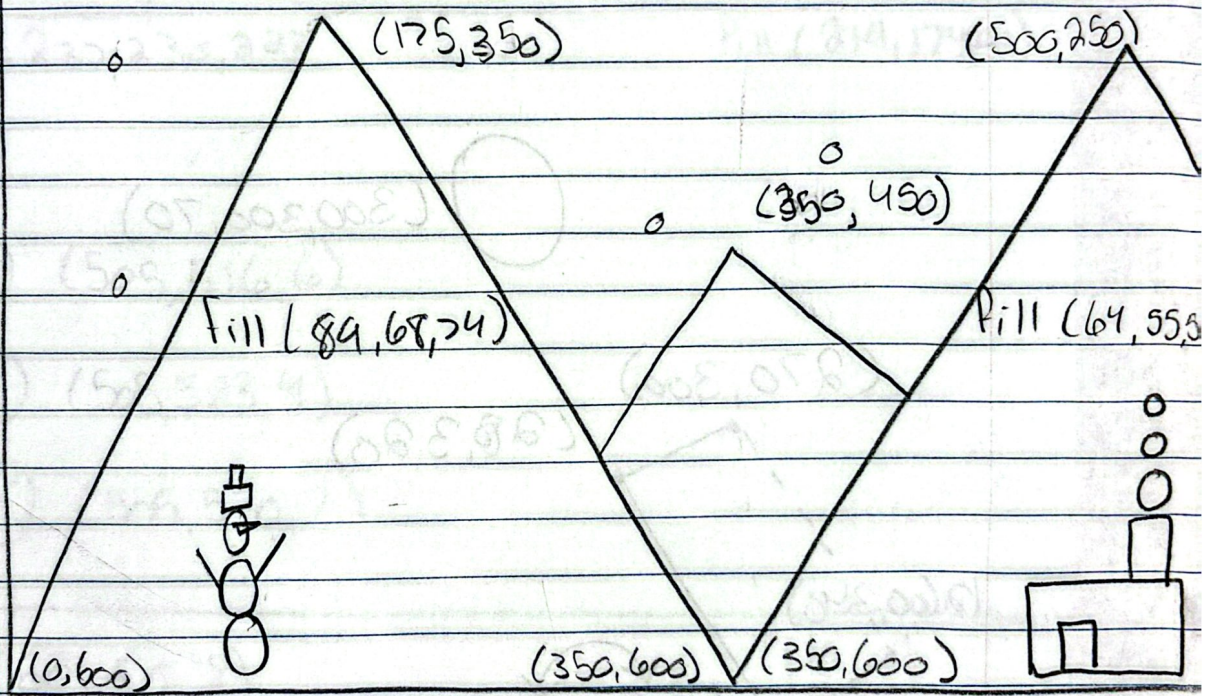 (175,350)
(500,250)
(350, 450)
fill (89,68,24)
fill (64,55,5
(0,600)
(350,600)
(350,600)